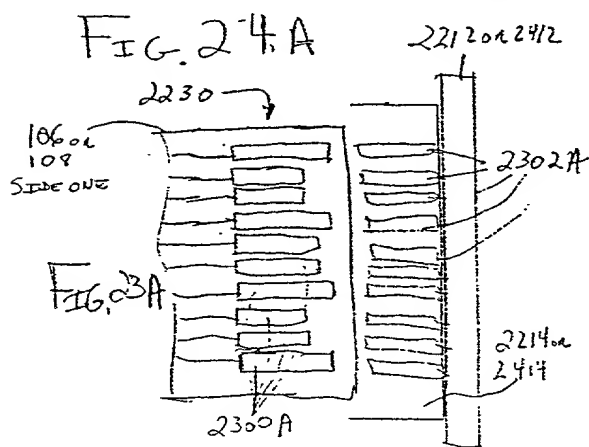 FIG. 24A
2212 or 2412
2230
106 or
108
SIDE ONE
2302A
FIG. 23A
2214 or
2414
2300A